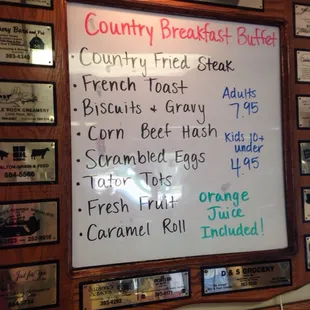 Country Breakfast Buffet
· Country Fried Steak
· French Toast
· Biscuits & Gravy
· Corn Beef Hash
· Scrambled Eggs
· Tator Tots
· Fresh Fruit
· Caramel Roll
Adults
7.95
Kids 10+
under
4.95
Orange
Juice
Included!
D & S GROCERY